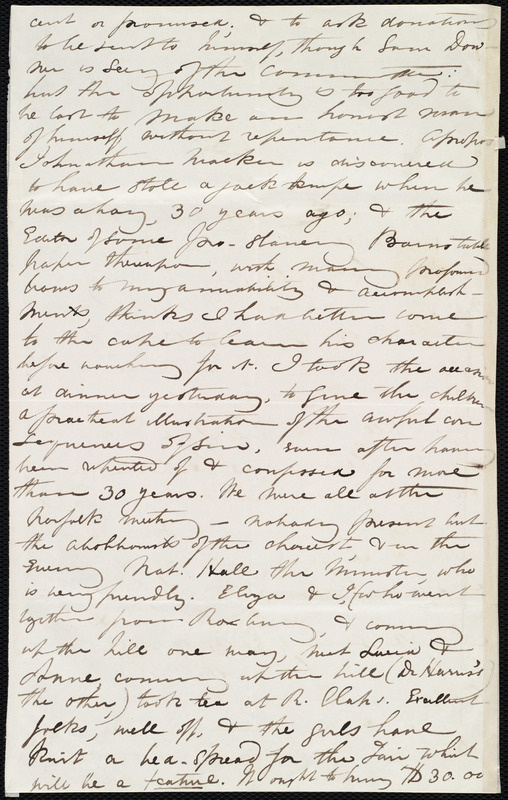 cent or promised; & to ask donations
to be sent to himself, though Sam Dow-
ner is Secy of the Committee:
but the opportunity is too good to
be lost to make an honest man
of himself without repentance. Apropos
Johnathan Walker is discovered
to have stole a jack knife when he
was a boy, 30 years ago; & the
Editor of some Pro-Slavery Barnstable
paper thereupon, with many profound
bows to my amiability & accomplish-
ments, thinks I had better come
to the cape to learn his character
before vouching for it. I took the occasion
at dinner yesterday, to give the children
a practical illustration of the awful con
sequences of sin, even after having
been repented of & confessed for more
than 30 years. We were all at the
Norfolk meeting — nobody present but
the abolitionists of the choicest, & in the
Evening Nat. Hall the Minister, who
is very friendly. Eliza & I, (who went
together from Roxbury, & coming
up the hill one way, met Lucia &
Anne, coming up the hill (Dr Harris's
the other,) took tea at R. Claps. Excellent
folks, well off, & the girls have
knit a bed-spread for the Fair which
will be a feature. It ought to bring $30.00